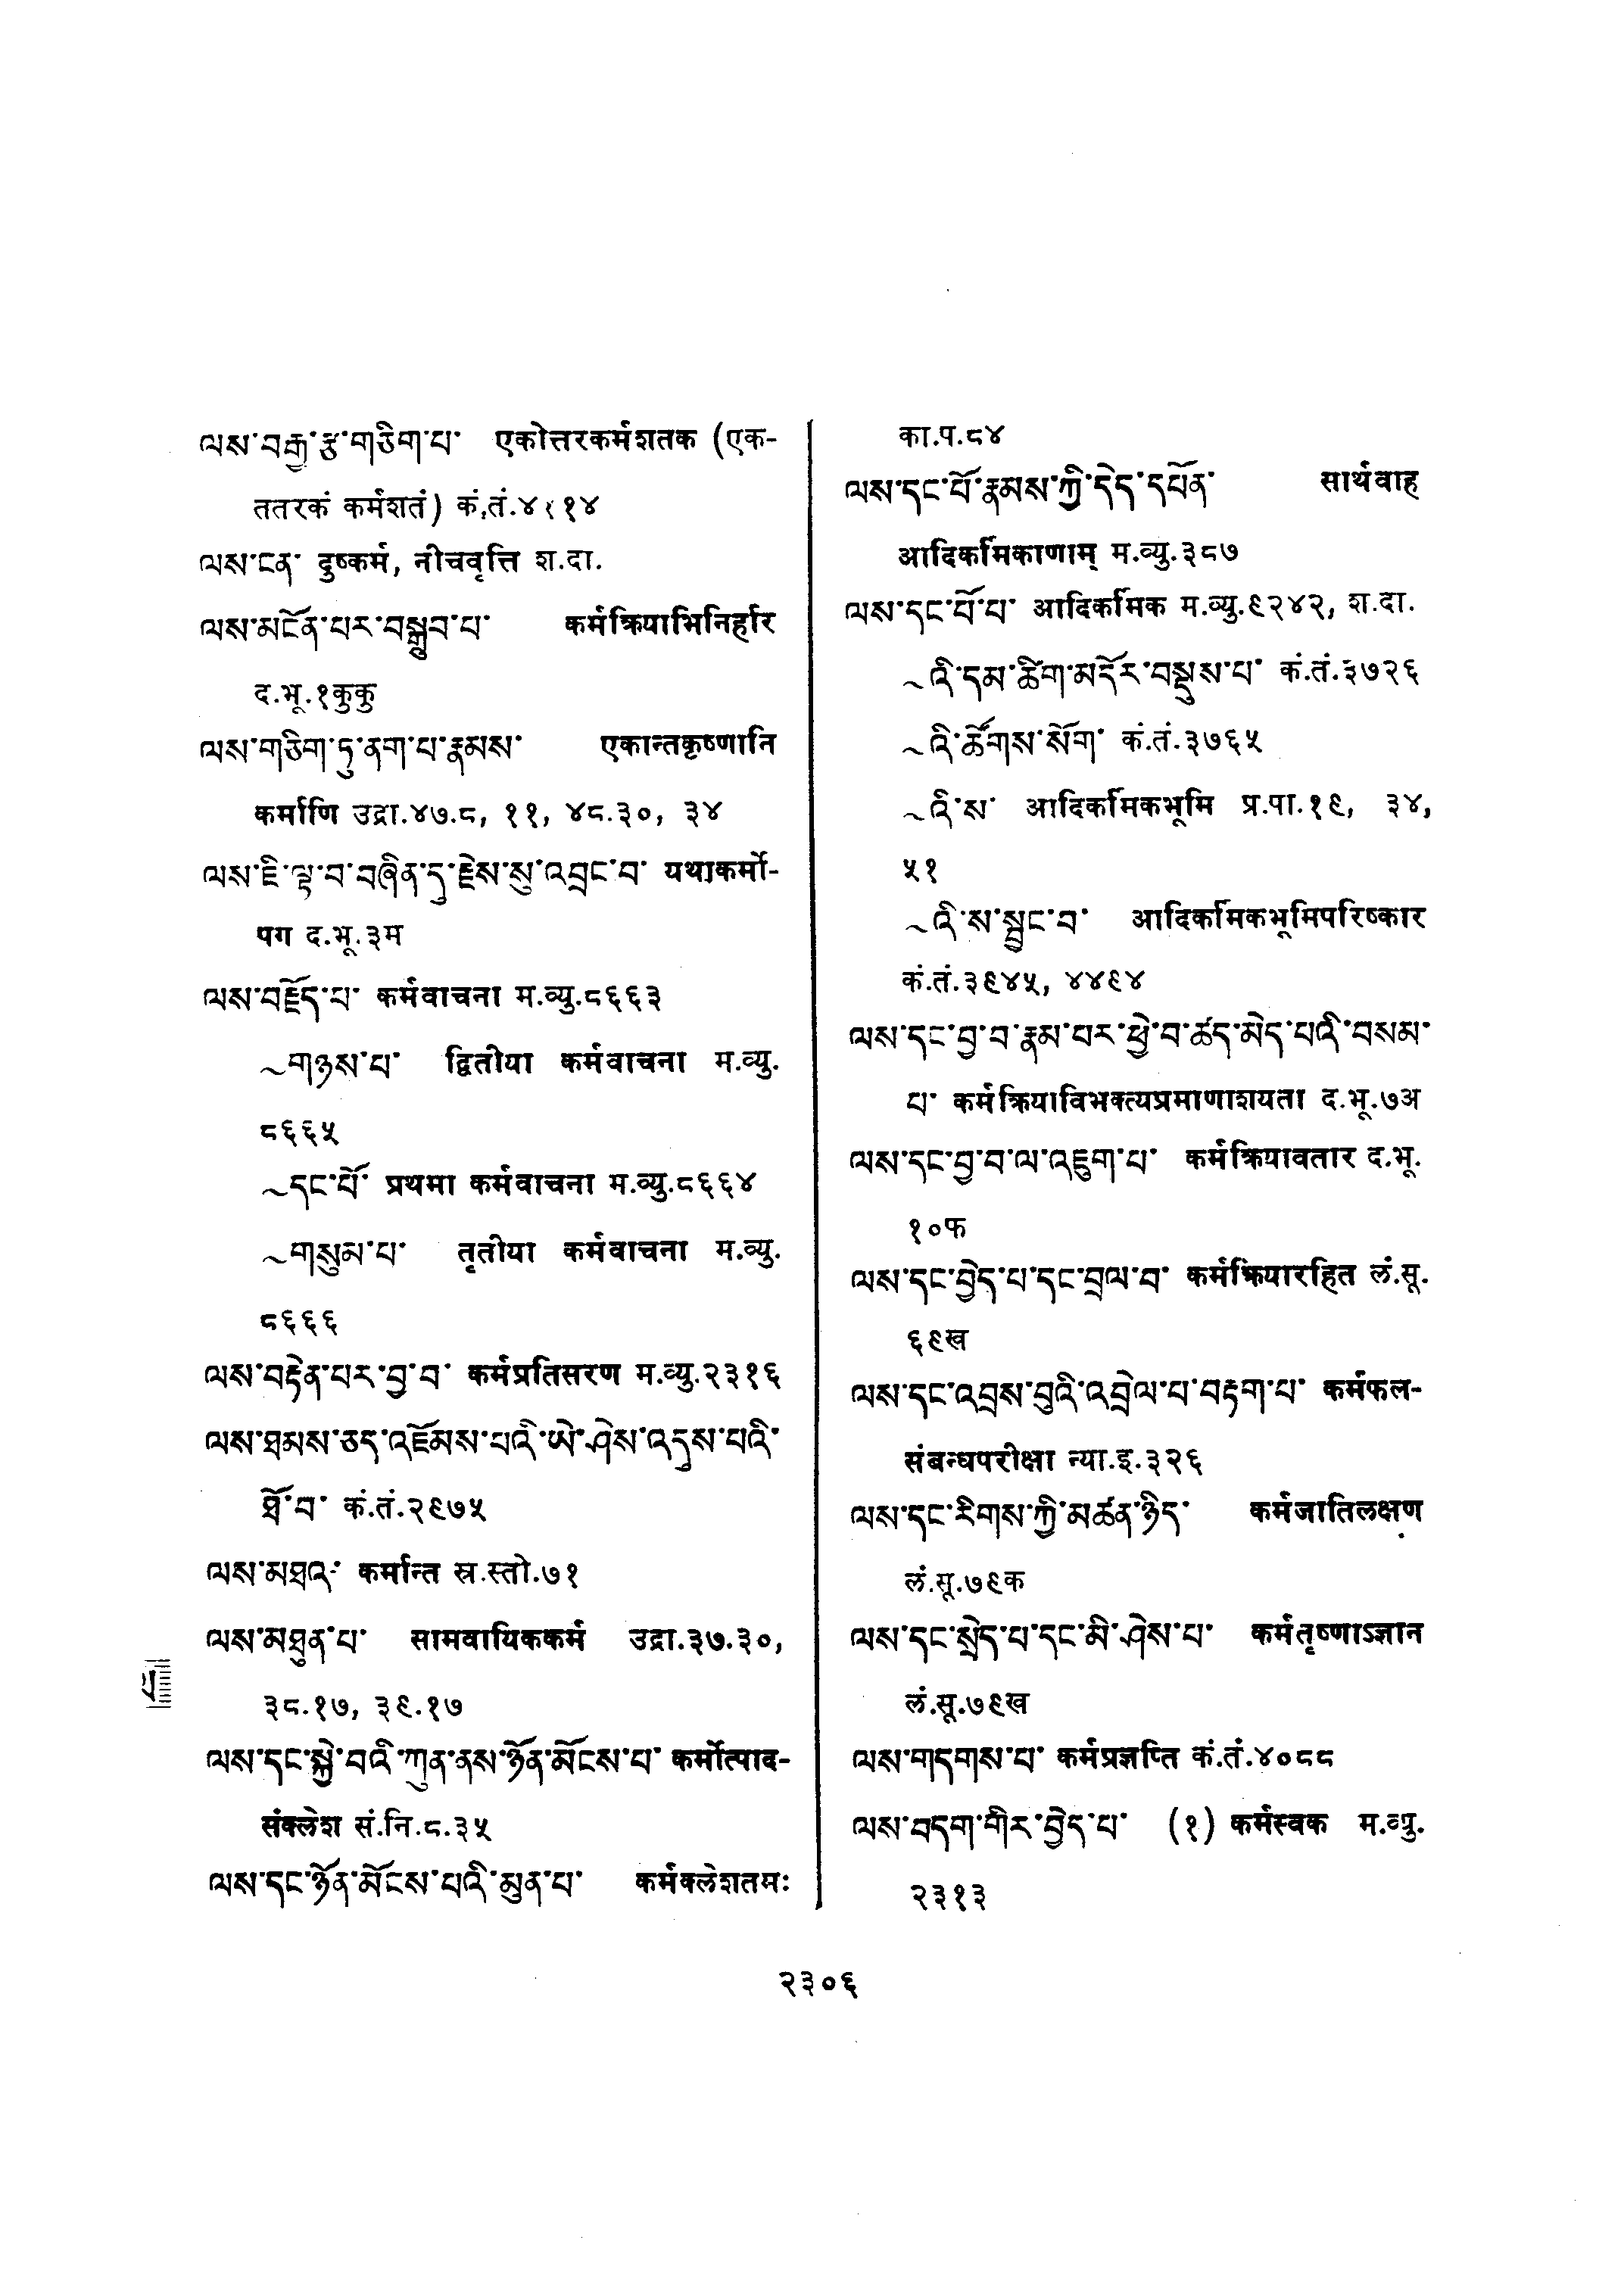 ལས་བརྒྱ་རྩ་གཅིག་པ་ एकोत्तरकर्मशतक (एक-
ततरकं कर्मशतं) कं.तं.४११४
ལས་ངན་ दुष्कर्म, नीचवृत्ति श.दा.
ལས་མངོན་པར་བསྒྲུབ་པ་ कर्मक्रियाभिनिर्हार
द.भू.१कुकु
ལས་གཅིག་ཏུ་ནག་པ་རྣམས་ एकान्तकृष्णानि
कर्माणि उद्रा.४७.८, ११, ४८.३०, ३४
ལས་ཇི་ལྟ་བ་བཞིན་དུ་རྗེས་སུ་འབྲང་བ་ यथाकर्मो-
पग द.भू.३म
ལས་བརྗོད་པ་ कर्मवाचना म.व्यु.८६६३
~གཉས་པ་ द्वितीया कर्मवाचना म.व्यु.
८६६५
~དང་པོ་ प्रथमा कर्मवाचना म.व्यु.८६६४
~གསུམ་པ་ तृतीया कर्मवाचना म.व्यु.
८६६६
ལས་བརྟེན་པར་བྱ་བ་ कर्मप्रतिसरण म.व्यु.२३१६
ལས་ཐམས་ཅད་འཇོམས་པའི་ཡེ་ཤེས་འདུས་པའི་
ཐོ་བ་ कं.तं.२९७५
ལས་མཐའ་ कर्मान्त स्र.स्तो.७१
ལས་མཐུན་པ་ सामवायिककर्म उद्रा.३७.३०,
३८.१७, ३९.१७
ལས་དང་སྐྱེ་བའི་ཀུན་ནས་ཉོན་མོངས་པ་ कर्मोत्पाद-
संक्लेश सं.नि.८.३५
ལས་དང་ཉོན་མོངས་པའི་མུན་པ་ कर्मक्लेशतमः
का.प.८४
ལས་དང་པོ་རྣམས་ཀྱི་དེད་དཔོན་ सार्थवाह
आदिकर्मिकाणाम् म.व्यु.३८७
ལས་དང་པོ་པ་ आदिकर्मिक म.व्यु.९२४२, श.दा.
~འི་དམ་ཚིག་མདོར་བསྡུས་པ་ कं.तं.३७२६
~འི་ཚོགས་སོག་ कं.तं.३७६५
~འི་ས་ आदिकर्मिकभूमि प्र.पा.१९, ३४,
५१
~འི་ས་སྦྱང་བ་ आदिकर्मिकभूमिपरिष्कार
कं.तं.३९४५, ४४९४
ལས་དང་བྱ་བ་རྣམ་པར་ཕྱེ་བ་ཚད་མེད་པའི་བསམ་
པ་ कर्मक्रियाविभक्त्यप्रमाणाशयता द.भू.७अ
ལས་དང་བྱ་བ་ལ་འཇུག་པ་ कर्मक्रियावतार द.भू.
१०फ
ལས་དང་བྱེད་པ་དང་བྲལ་བ་ कर्मक्रियारहित लं.सू.
६९ख
ལས་དང་འབྲས་བུའི་འབྲེལ་པ་བརྟག་པ་ कर्मफल-
संबन्धपरीक्षा न्या.इ.३२६
ལས་དང་རིགས་ཀྱི་མཚན་ཉིད་ कर्मजातिलक्षण
लं.सू.७९क
ལས་དང་སྲེད་པ་དང་མི་ཤེས་པ་ कर्मतृष्णाऽज्ञान
लं.सू.७९ख
ལས་གདགས་པ་ कर्मप्रज्ञप्ति कं.तं.४०८८
ལས་བདག་གིར་བྱེད་པ་ (१) कर्मस्वक म.व्यु.
२३१३
२३०६